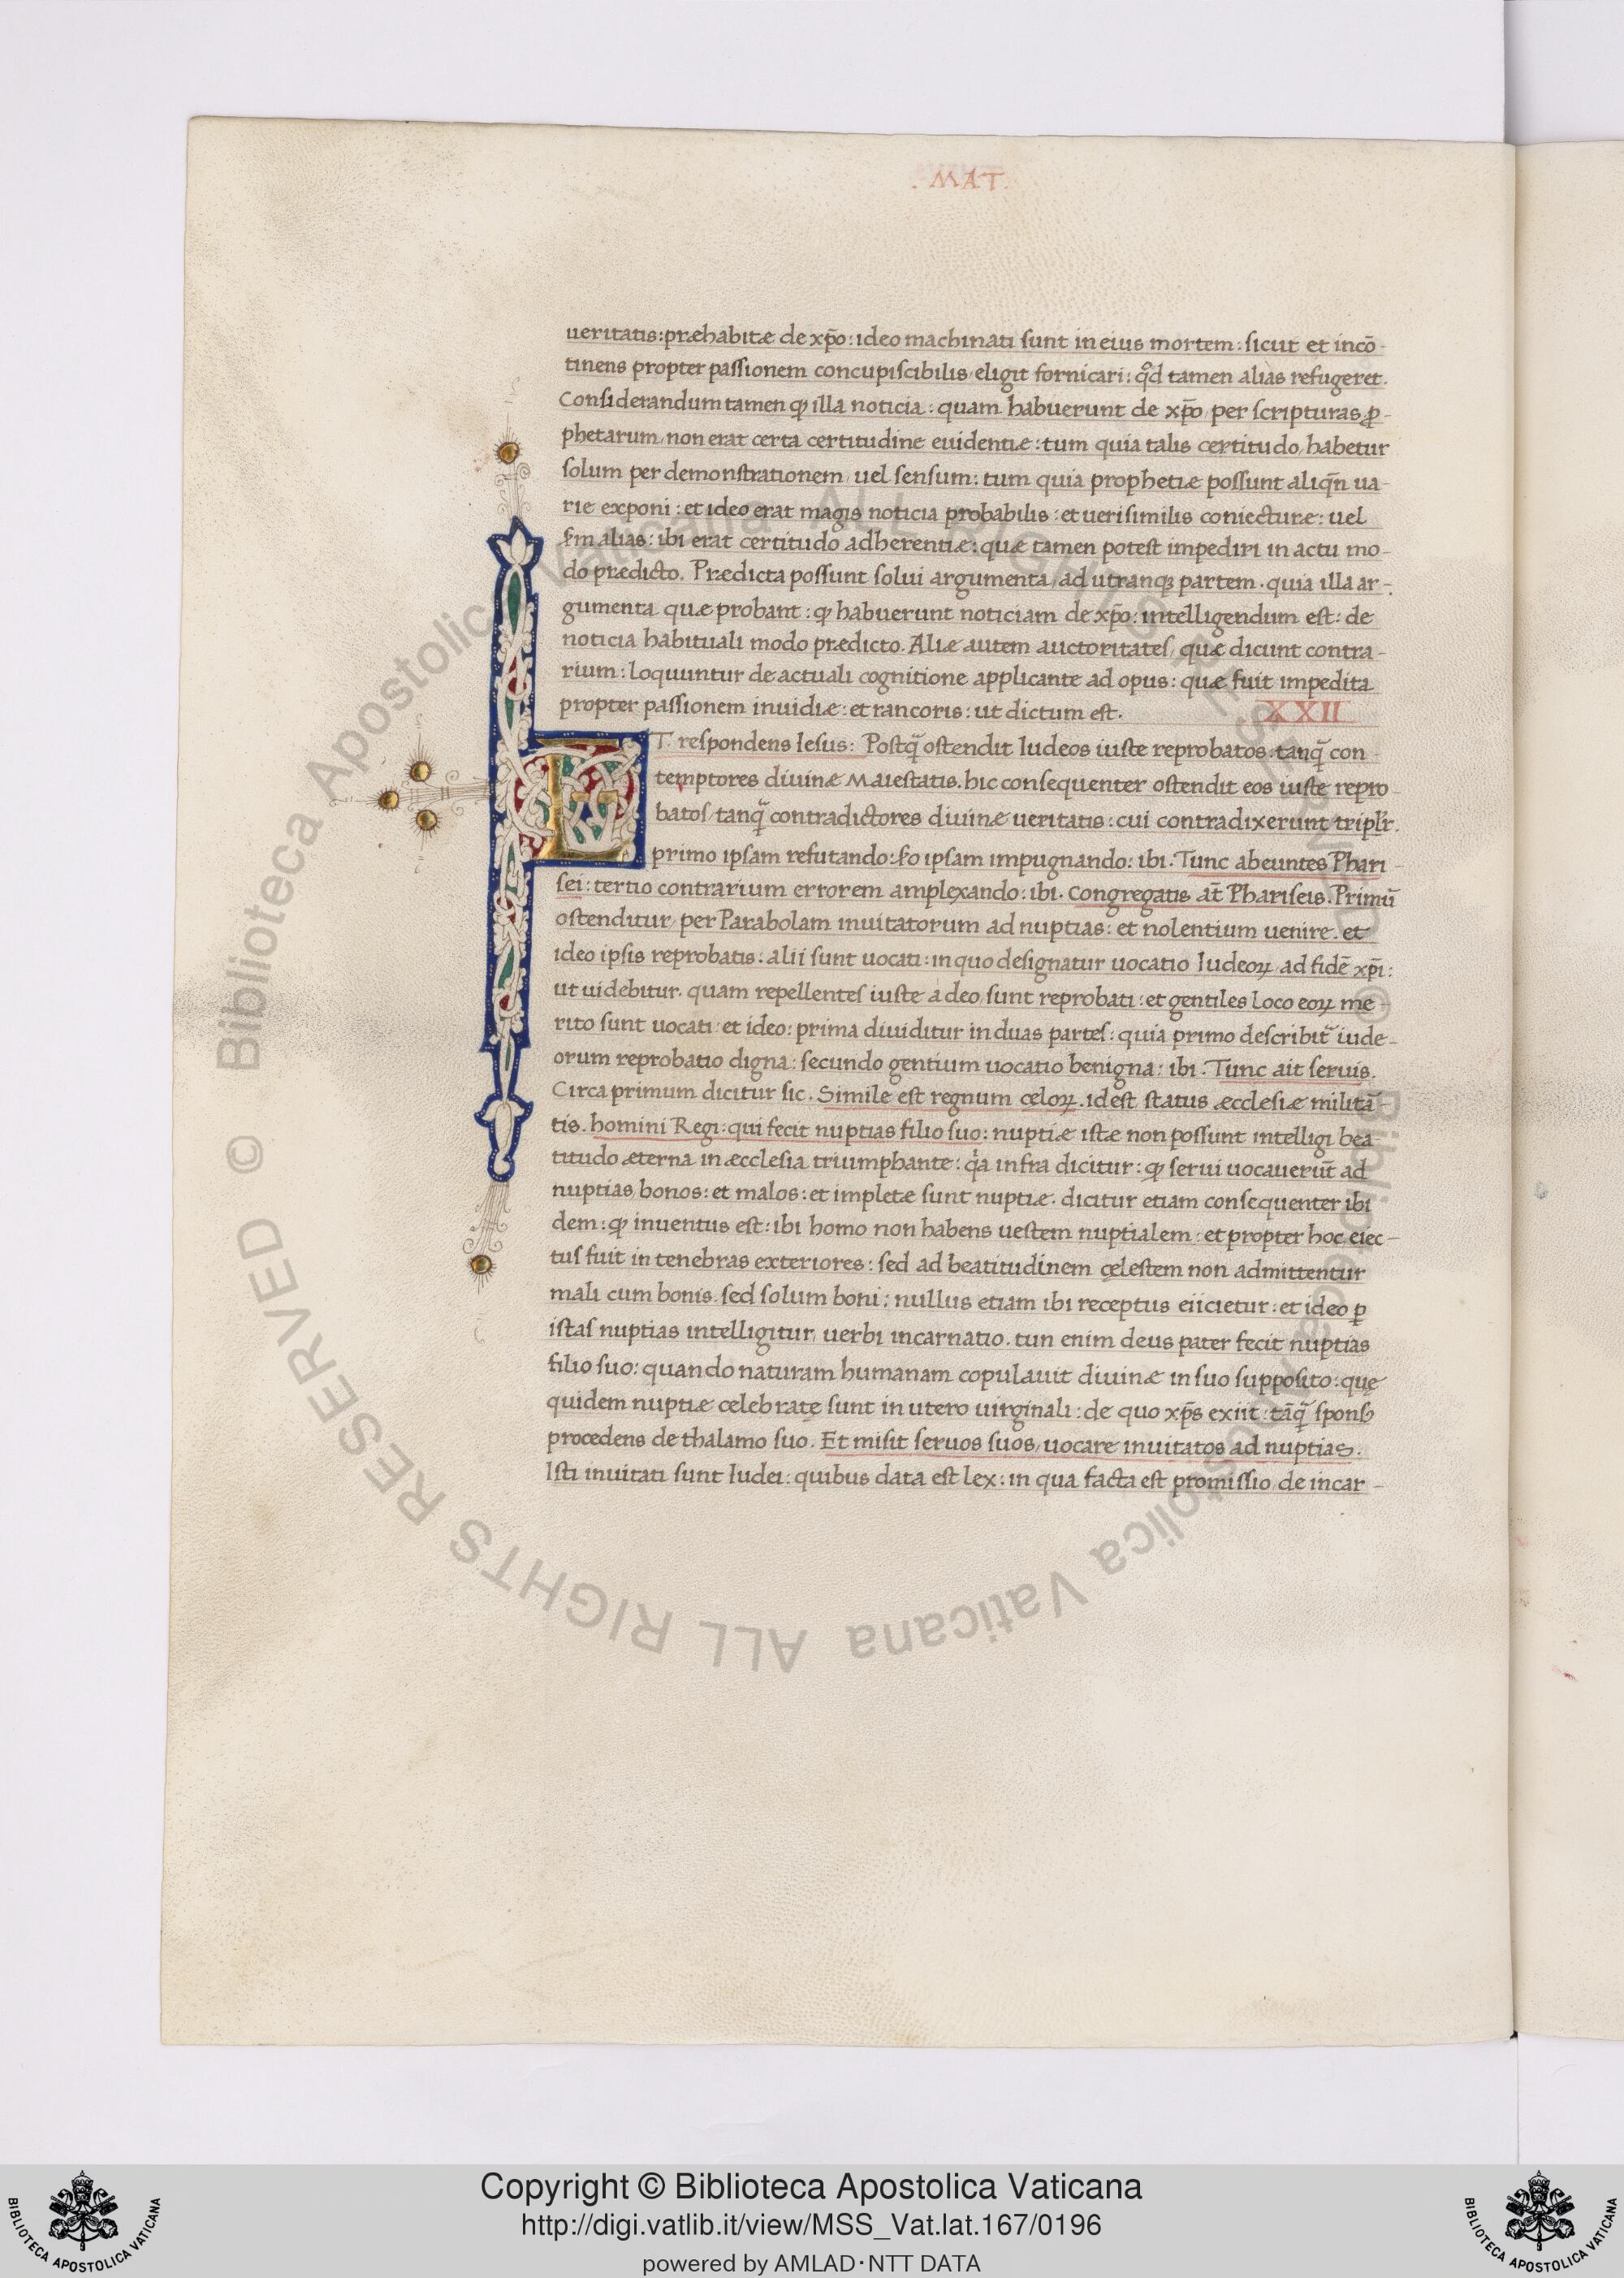 . MAT.
ueritatis: præhabitæ de xp̄o: ideo machinati sunt in eius mortem: sicut et incō-
tinens propter passionem concupiscibilis, eligit fornicari: qd̓ tamen alias refugeret.
Considerandum tamen ꝙ illa noticia: quam habuerunt de xp̄o, per scripturas ꝓ-
phetarum, non erat certa certitudine euidentiæ: tum quia talis certitudo, habetur
solum per demonstrationem, uel sensum: tum quia prophetiæ possunt aliqn̄ ua-
rie exponi: et ideo erat magis noticia probabilis: et uerisimilis coniecturæ: uel
ẜm alias: ibi erat certitudo adherentiæ: quæ tamen potest impediri in actu mo-
do prædicto. Prædicta possunt solui argumenta, ad utranqꝫ partem. quia illa ar-
gumenta quæ probant: ꝙ habuerunt noticiam de xp̄o: intelligendum est: de
noticia habituali modo prædicto. Aliæ autem auctoritates, quæ dicunt contra-
rium: loquuntur de actuali cognitione applicante ad opus: quæ fuit impedita
propter passionem inuidiæ: et rancoris: ut dictum est. XXII
ET. respondens Iesus: Postq̄ ostendit Iudeos iuste reprobatos, tanq̄ con
temptores diuinæ Maiestatis. hic consequenter ostendit eos iuste repro-
batos, tanq̄ contradictores diuinæ ueritatis: cui contradixerunt tripl̄r.
primo ipsam refutando: ẜo ipsam impugnando: ibi. Tunc abeuntes Phari-
sei: tertio contrarium errorem amplexando: ibi. Congregatis at̄ Phariseis. Primū
ostenditur, per Parabolam inuitatorum ad nuptias: et nolentium uenire. et
ideo ipsis reprobatis: alii sunt uocati: in quo designatur uocatio Iudeoꝝ ad fidē xp̄i:
ut uidebitur. quam repellentes iuste a deo, sunt reprobati: et gentiles loco eoꝝ me-
rito sunt uocati: et ideo: prima diuiditur in duas partes: quia primo describit̄ iude-
orum reprobatio digna: secundo gentium uocatio benigna: ibi. Tunc ait seruis.
Circa primum dicitur sic. Simile est regnum cęloꝝ. id est status æcclesiæ militā-
tis. homini Regi: qui fecit nuptias filio suo: nuptiæ istæ non possunt intelligi bea-
titudo æterna in æcclesia triumphante: qa̓ infra dicitur: ꝙ serui uocauerūt ad
nuptias, bonos: et malos: et impletæ sunt nuptiæ. dicitur etiam consequenter ibi
dem: ꝙ inuentus est: ibi homo non habens uestem nuptialem: et propter hoc eiec-
tus fuit in tenebras exteriores: sed ad beatitudinem cęlestem non admittentur
mali cum bonis. sed solum boni: nullus etiam ibi receptus eiicietur: et ideo ꝑ
istas nuptias intelligitur, uerbi incarnatio. tun enim deus pater fecit nuptias
filio suo: quando naturam humanam copulauit diuinæ in suo supposito: quę
quidem nuptiæ celebratę sunt in utero uirginali: de quo xp̄s exiit: tāq̄ sponsꝰ
procedens de thalamo suo. Et misit seruos suos, uocare inuitatos ad nuptias.
Isti inuitati sunt Iudei: quibus data est lex: in qua facta est promissio, de incar-
© Biblioteca Apostolica Vaticana ALL RIGHTS RESERVED
© Biblioteca Apostolica Vaticana ALL RIGHTS RESERVED
Copyright © Biblioteca Apostolica Vaticana
http://digi.vatlib.it/view/MSS_Vat.lat.167/0196
powered by AMLAD·NTT DATA
BIBLIOTECA APOSTOLICA VATICANA
BIBLIOTECA APOSTOLICA VATICANA